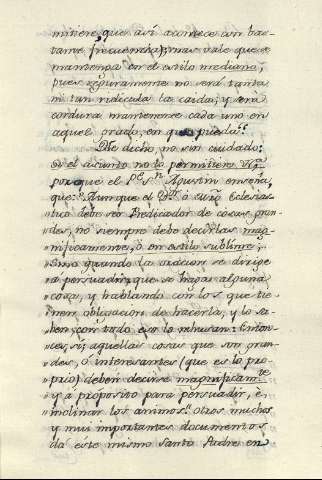 mitiere, que así acontece con bas-
tante frecuencia); mas vale que se
mantenga en el estilo mediano,
pues seguramente no será tanta
ni tan ridícula la caída; y será
cordura mantenerse cada uno en
aquel grado, en que pueda."
Este dicho, no sin cuidado:
si el asunto no lo permitiere
porque el P.e S.n Agustin enseña,
que: "Aunque el Eclesias-
tico debe ser Predicador de cosas gran-
des, no siempre debe decirlas mag-
nificamente, ó en estilo sublime;
sino quando la oracion se dirige
á persuadir que se haga alguna
cosa, y hablando con los que tie-
nen obligacion de hacerla, y lo sa-
ben, con todo eso lo rehusan: Enton-
ces, sí, aquellas cosas que son gran-
des, ó interesantes (que es lo pro-
prio) deben decirse magnificam.te
y á proposito para persuadir, é
inclinar los animos." Otros muchos
y mui importantes documentos
dá este mismo Santo Padre en